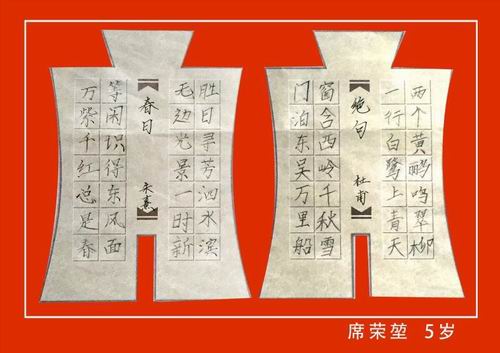 两个黄鹂鸣翠柳
一行白鹭上青天
绝句
杜甫
窗含西岭千秋雪
门泊东吴万里船
胜日寻芳泗水滨
无边光景一时新
春日
朱熹
等闲识得东风面
万紫千红总是春
席荣堃 5岁